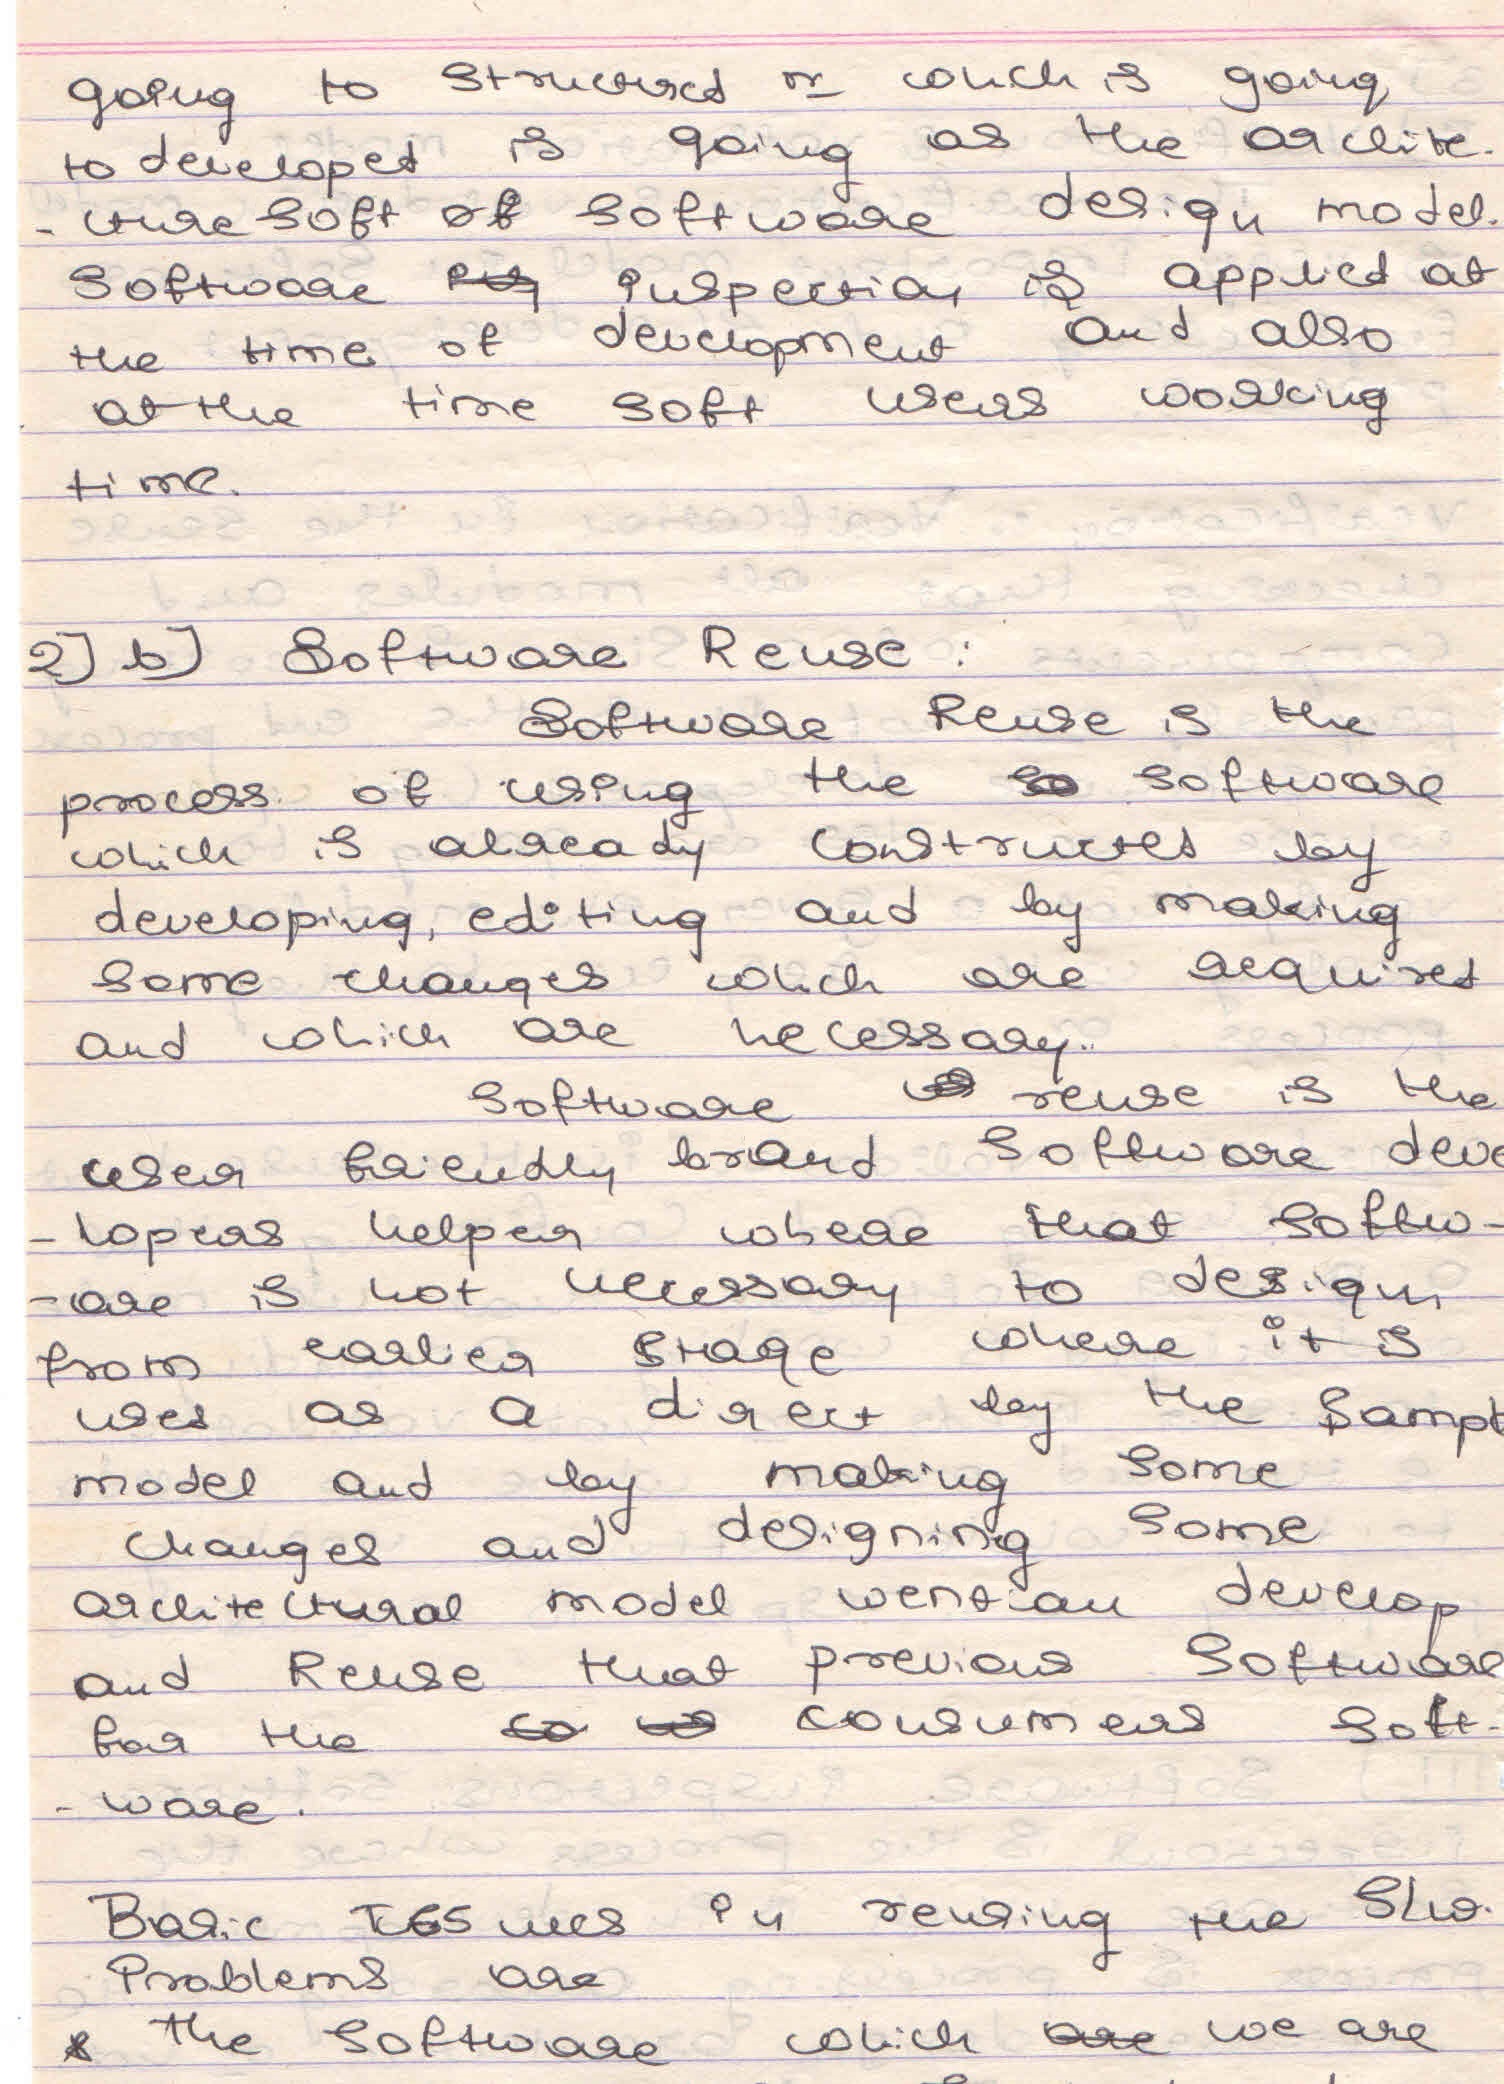 going to structured or which is going
to developed is going as the archite.
- cture soft of software design model.
Software inspection is applied at
the time of development and also
at the time soft users working
time.
2] b] Software Reuse :
Software Reuse is the
process of using the software
which is already constructed by
developing, editing and by making
some changes which are required
and which are necessary..
Software reuse is the
user friendly brand software deve
- lopers helper where that softw-
- are is not necessary to design
from earlier stage where it is
used as a direct by the sampl
model and by making some
changes and designing some
architectural model develop
and Reuse that previous software
for the consumers soft-
- ware.
Basic Issues in reusing the S/w.
Problems are
* the software which we are